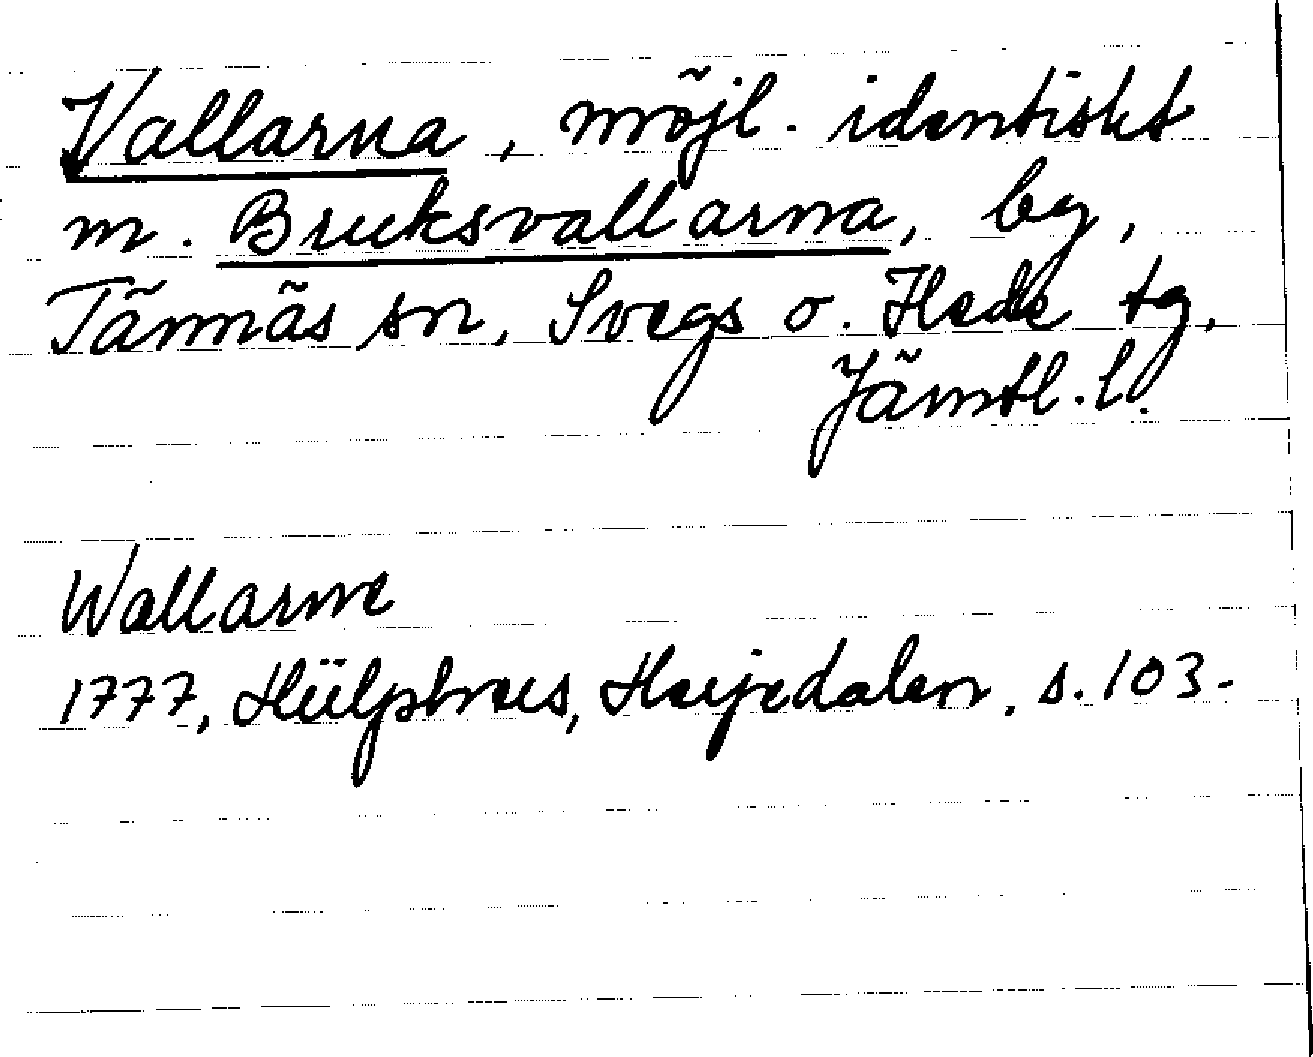 Vallarna, möjl. identiskt
m. Bruksvallarna, by,
Tännäs sn, Svegs o. Hede tg,
Jämtl. l.
Wallarne
1777, Hülphers, Herjedalen, s. 103.